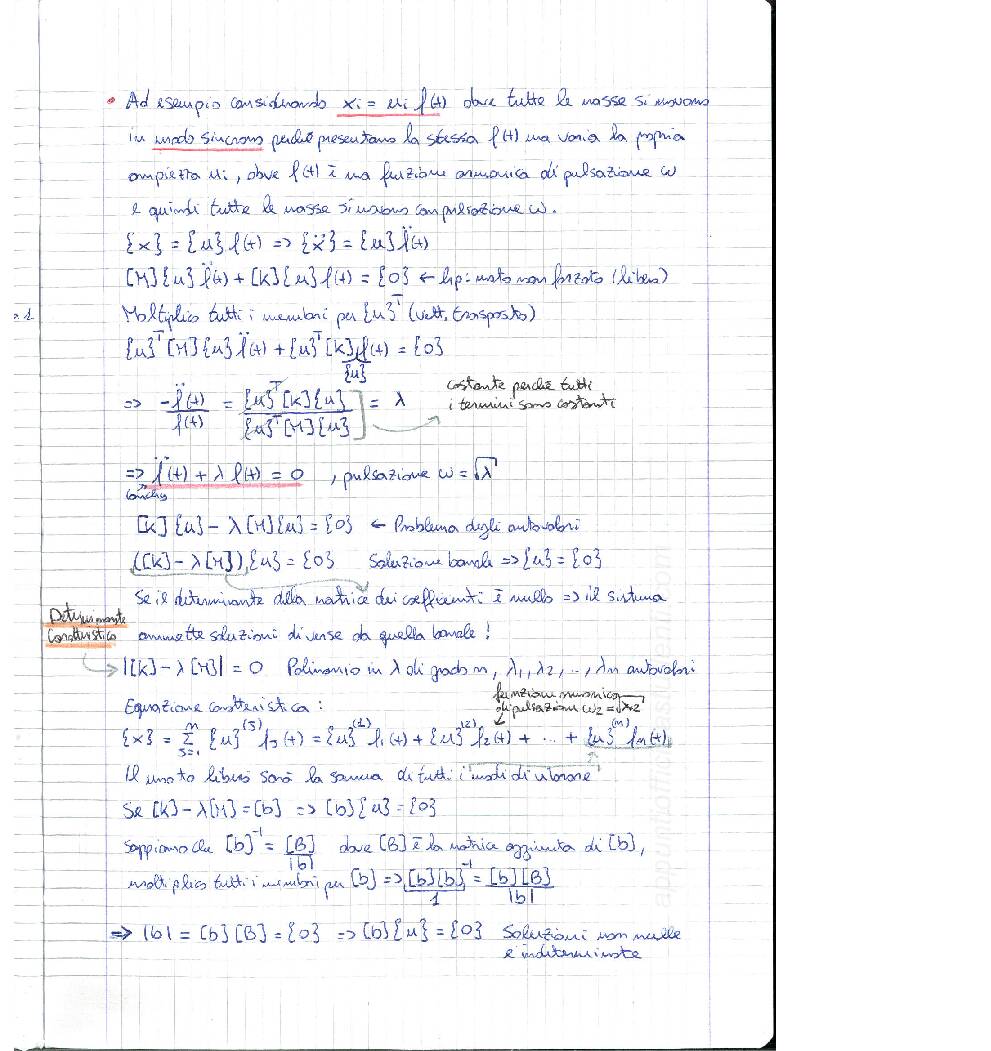 • Ad esempio considerando xi = ui f(t) dove tutte le masse si muovono
in modo sincrono perché presentano la stessa f(t) ma varia la propria
ampiezza ui, dove f(t) è una funzione armonica di pulsazione ω
e quindi tutte le masse si muovono con pulsazione ω.
{x} = {u} f(t) => {ẍ} = {u} f̈(t)
[M]{u} f̈(t) + [K]{u} f(t) = {0} ← hp: moto non forzato (libero)
Moltiplico tutti i membri per {u}ᵀ (vett. trasposto)
{u}ᵀ[M]{u} f̈(t) + {u}ᵀ[K] f(t) = {0}
{u}
costante perché tutti
i termini sono costanti
=> -f̈(t)/f(t) = {u}ᵀ[K]{u}/{u}ᵀ[M]{u} = λ
=> f̈(t) + λ f(t) = 0 , pulsazione ω = √λ
[K]{u} - λ[M]{u} = {0} ← Problema degli autovalori
([K] - λ[M]){u} = {0} Soluzione banale => {u} = {0}
Se il determinante della matrice dei coefficienti è nullo => il sistema
Determinante
Caratteristico
ammette soluzioni diverse da quella banale!
|[K] - λ[M]| = 0 Polinomio in λ di grado m, λ1, λ2, .., λm autovalori
funzione armonica
di pulsazioni ω2 = √λ2
Equazione caratteristica:
{x} = Σ {u}⁽ˢ⁾ fs(t) = {u}⁽¹⁾ f1(t) + {u}⁽²⁾ f2(t) + ... + {u}⁽ᵐ⁾ fm(t)
Il moto libero sarà la somma di tutti i "modi di vibrare"
Se [K] - λ[M] = [b] => [b]{u} = {0}
Sappiamo che [b]⁻¹ = [B]/|b| dove [B] è la matrice aggiunta di [b],
moltiplico tutti i membri per [b] => [b][b]⁻¹ = [b][B]/|b|
1
=> |b| = [b][B] = {0} => [b]{u} = {0} Soluzioni non nulle
e indeterminate
appuntiofficinastudenti.com